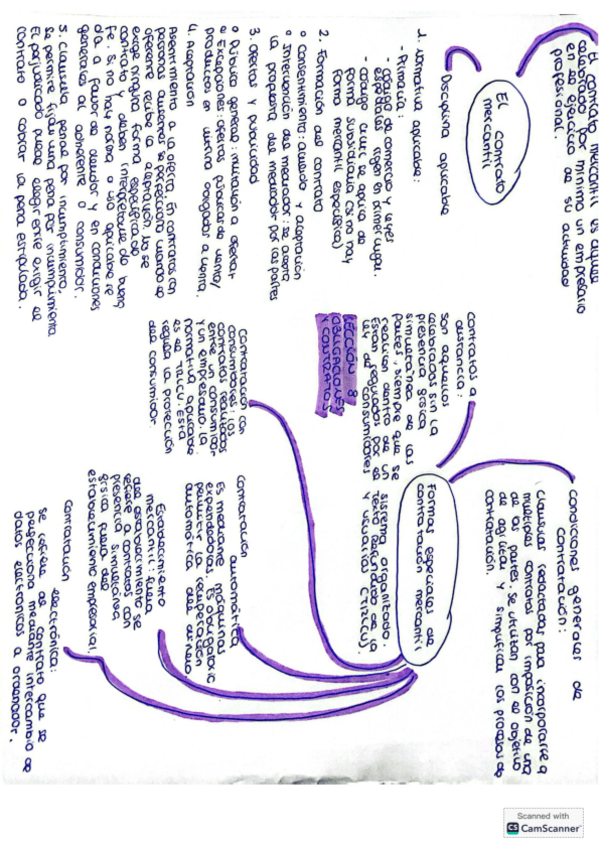 El contrato mercantil es aquel
celebrado por mínimo un empresario
en el ejercicio de su actividad
profesional.
El contrato
mercantil
Disciplina aplicable
1. Normativa aplicable:
- Primaria:
- código de comercio y leyes
especiales rigen en primer lugar.
- código civil se aplica de
forma subsidiaria (si no hay
forma mercantil específica)
2. Formación del contrato
o consentimiento: acuerdo y aceptación
o Intervención del mediador: se acepta
la propuesta del mediador por las partes
3. Ofertas y publicidad
o Público general: invitación a ofertar
o Excepciones: ofertas públicas de venta/
productos en vitrina obligados a venta.
4. Aceptación
Asentimiento a la oferta. En contratos con
personas ausentes se perfecciona cuando el
oferente recibe la aceptación. No se
exige ninguna forma específica de
contrato y deben interpretarse de buena
fe. Si no hay norma o uso aplicable se
da a favor de deudor y en condiciones
generales al adherente o consumidor.
5. Clausula penal por incumplimiento,
se permite fijar una pena por incumplimiento
El perjudicado puede elegir entre exigir el
contrato o cobrar la pena estipulada.
LECCIÓN 8
OBLIGACIONES
Y CONTRATOS
Formas especiales de
contratación mercantil
Condiciones generales de
contratación:
Clausulas redactadas para incorporarse a
multiples contratos por imposición de una
de las partes. Se utilizan con el objetivo
de agilizar y simplificar los procesos de
contratación.
Contratos a
distancia:
son aquellos
celebrados sin la
presencia física
simultánea de las
partes, siempre que se
realicen dentro de un
sistema organizado.
Están regulados por el
texto refundido de la
ley de consumidores
y usuarios (TRLCU).
Contratación con
consumidores: los
contratos realizados
entre un consumidor
y un empresario. La
normativa aplicable
es el TRLCU. Esta
regula la protección
del consumidor.
Contratación automática
Es mediante máquinas
expendedoras. Es obligatorio
permitir la recuperación
automática del dinero
Establecimiento
mercantil: fuera
del establecimiento se
refiere a contratos con
presencia simultánea
física fuera del
establecimiento empresarial.
Contratación electrónica:
se refiere al contrato que se
perfecciona mediante intercambio de
datos electrónicos a ordenador.
Scanned with
CS CamScanner